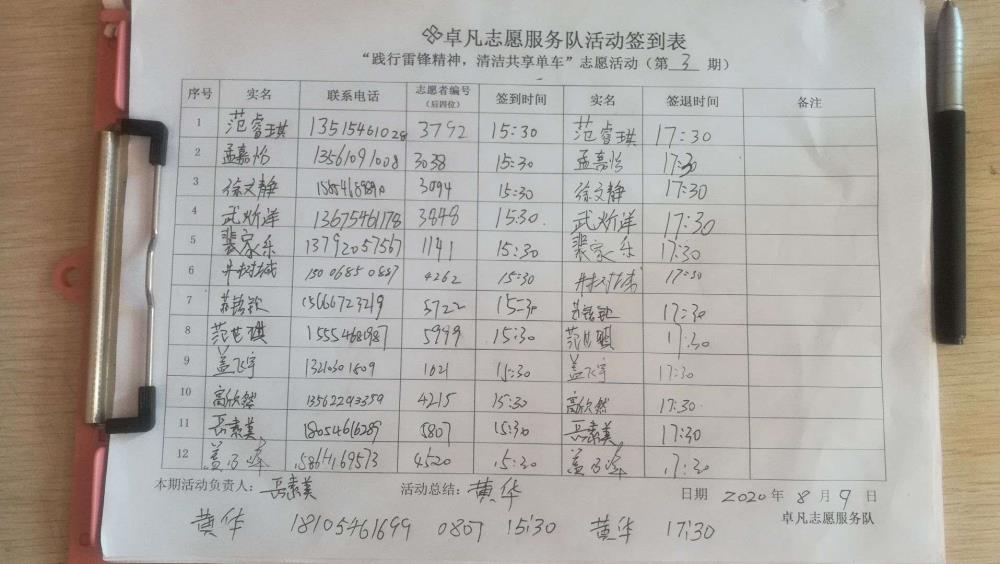 卓凡志愿服务队活动签到表
“践行雷锋精神，清洁共享单车”志愿活动（第 3 期）
序号 实名 联系电话 志愿者编号（后四位） 签到时间 实名 签退时间 备注
1 范睿琪 13515461028 3792 15:30 范睿琪 17:30
2 孟嘉怡 13561091008 3038 15:30 孟嘉怡 17:30
3 徐文静 3094 15:30 徐文静 17:30
4 武炘洋 13675461178 3848 15:30 武炘洋 17:30
5 裴家乐 13792057567 1141 15:30 裴家乐 17:30
6 15006850887 4262 15:30 17:30
7 15666723219 5722 15:30 17:30
8 范世琪 15554681987 5999 15:30 范世琪 17:30
9 盖飞宇 1621 15:30 盖飞宇 17:30
10 高欣然 13562293359 4215 15:30 高欣然 17:30
11 岳素美 18054616289 5807 15:30 岳素美 17:30
12 盖乃峰 15864169573 4520 15:30 盖乃峰 17:30
本期活动负责人：岳素美 活动总结：黄华 日期 2020 年 8 月 9 日
卓凡志愿服务队
黄华 18105461699 0807 15:30 黄华 17:30